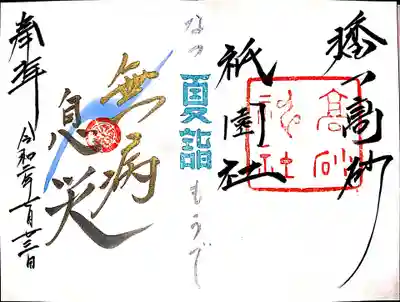 播州高砂
高砂神社
祇園社
なつ
夏詣
もうで
無病
息災
奉拝
令和二年七月廿三日